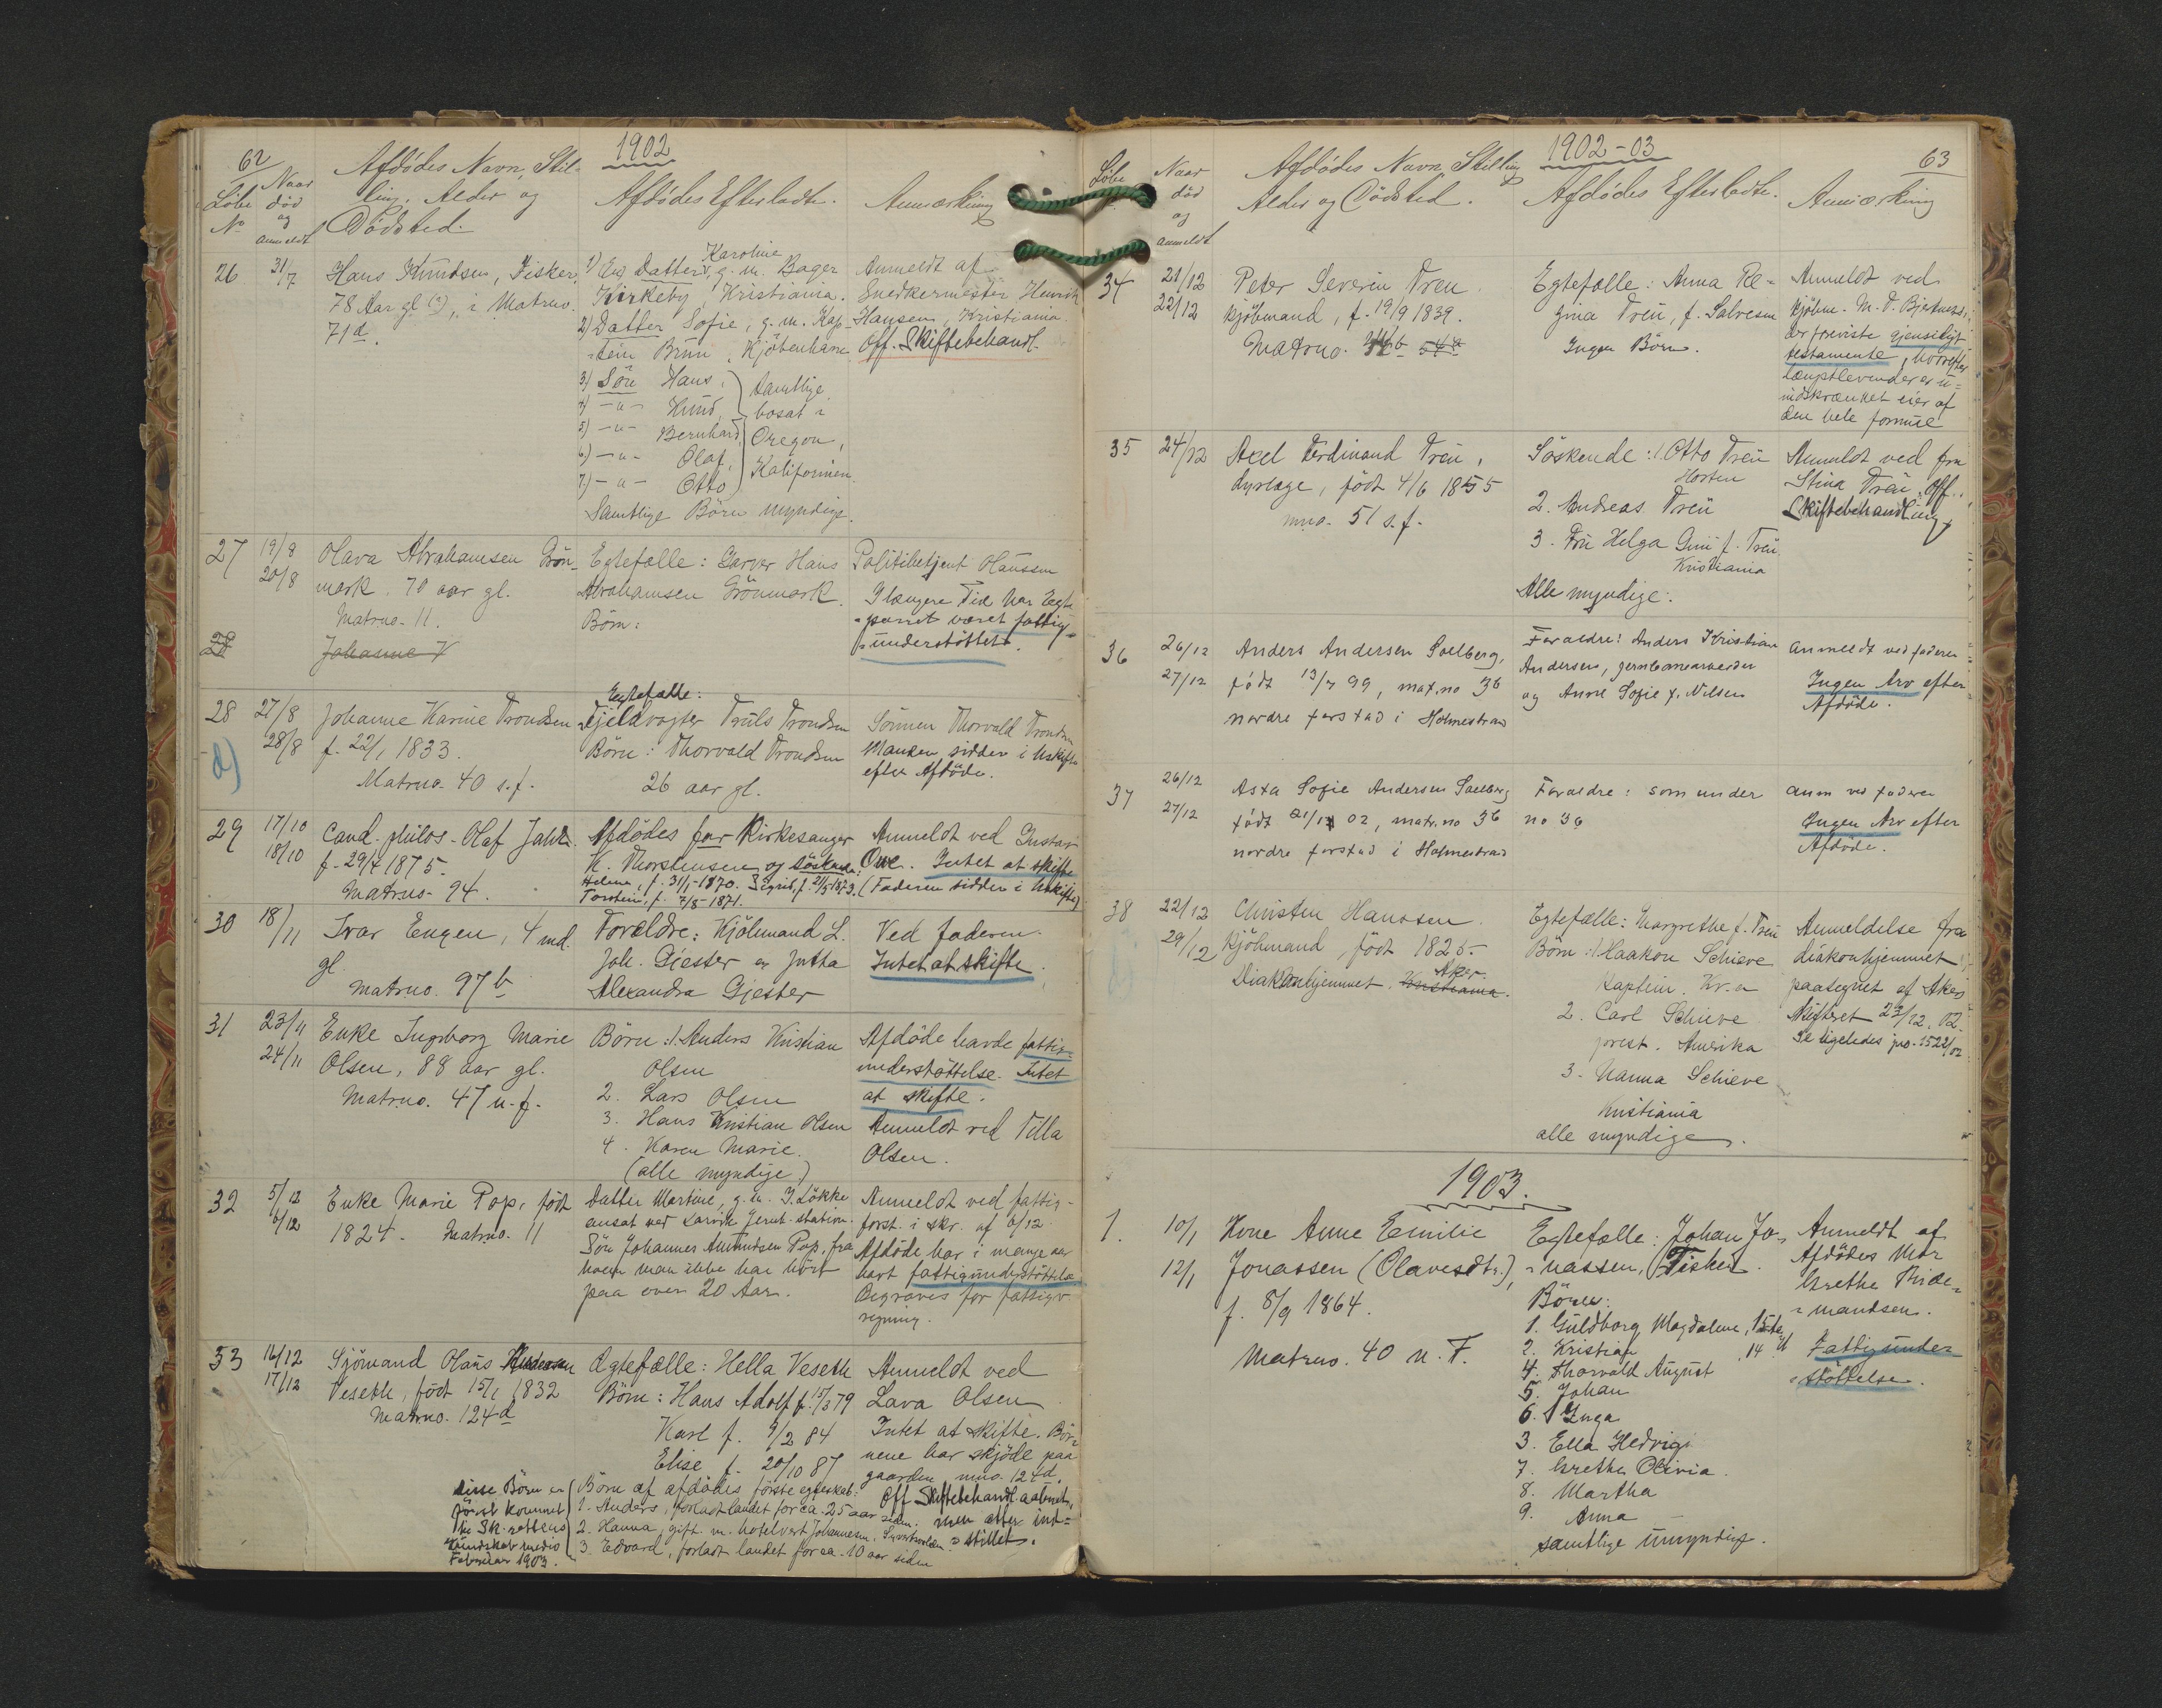 62
1902
Löbe No
Naar död og anmeldt
Afdödes Navn, Stil-
ling, Alder og
Dödsted.
Afdödes Efterladte.
Anmærkning
26
31/7
Hans Knudsen, Fisker,
78 Aar gl (?), i Matrno.
71d.
Karoline
1) En Datter, g. m. Bager
Kirkeby, Kristiania.
2) Datter Sofie, g. m. Kap-
tein Brün, Kjöbenhavn
3) Sön Hans,
4) -"- Knud,
5) -"- Bernhard,
6) -"- Olaf,
7) -"- Otto
Samtlige
bosat i
Oregon,
Kalifornien.
Samtlige Börn myndige.
Anmeldt af
Snedkermester Henrik
Hansen, Kristiania.
Off. Skiftebehandl.
27
19/8
20/8
Olava Abrahamsen Grön-
mark. 70 aar gl.
Matrno. 11.
Egtefælle: Garver Hans
Abrahamsen Grönmark.
Börn:
Politibetjent Olaussen
I længere Tid har Egte
parret været fattig-
understöttet.
28
Johanne K
28
27/8
28/8
Johanne Karine Trondsen
f. 22/1 1833.
Matrno. 40 s.f.
Egtefælle:
Fjeldvogter Truls Trondsen
Börn: Thorvald Trondsen
26 aar gl.
Sönnen Thorvald Trondsen
Manden sidder i Uskifte
efter Afdöde.
29
17/10
18/10
Cand. philos. Olaf Jahln
f. 29/4 1875.
Matrno. 94.
Afdödes far Kirkesanger
K. Thorstensen og söskende:
Helena, f. 31/1-1870. Sigrid, f. 21/5 1873.
Torstein, f. 7/8-1871.
Anmeldt ved Gustav
Owe. Intet at skifte
(Faderen sidder i Uskifte)
30
18/11
Ivar Eugen, 4 md.
gl
Matrno. 97b
Forældre: Kjöbmand L.
Joh. Gjester og Jutta
Alexandra Gjester
Ved faderen.
Intet at skifte.
31
23/11
24/11
Enke Ingeborg Marie
Olsen, 88 aar gl.
Matrno. 47 n.f.
Börn: 1. Anders Kristian
Olsen
2. Lars Olsen
3. Hans Kristian Olsen
4. Karen Marie.
(alle myndige)
Afdöde havde fattig-
understöttelse. Intet
at skifte.
Anmeldt ved Tilla
Olsen.
32
5/12
6/12
Enke Marie Pop, född
1824. Matrno. 11
Datter Martine, g. m. J. Lökke
ansat ved Larvik Jernb. station.
Sön Johannes Amundsen Pop, fra
hvem man ikke har hört
paa over 20 Aar.
Anmeldt ved fattig-
forst. i skr. af 6/12.
Afdöde har i mange aar
havt fattigunderstöttelse
Begraves for fattigv.
regning.
33
16/12
17/12
Sjömand Olaus Andersen
Veseth, födt 15/1 1832
Matrno. 124d
Ægtefælle: Hella Veseth
Börn: Hans Adolf f. 15/3 79
Karl f. 9/2 84
Elise f. 20/10 87
Anmeldt ved
Lava Olsen
Intet at skifte. Bör-
nene har skjöde paa
gaarden mno. 124d.
Off Skiftebehandl. aabnet,
men atter ind-
stillet.
Disse Börn er
först kommet
til Sk. rettens
Kundskab medio
Februar 1903.
Börn af afdödes förste egteskab:
1. Anders, forladt landet for ca. 25 aar siden.
2. Hanna, gift m. hotelvert Johannesen,
3. Edvard, forladt landet for ca. 10 aar siden
1902-03
63
Löbe
Naar död og anmeldt
Afdödes Navn, Stilling
Alder og Dödsted.
Afdödes Efterladte.
Anmærkning
34
21/12
22/12
Peter Severin Treu
Kjöbmand, f. 19/9 1839.
Matrno.
Egtefælle: Anna Re-
gina Treu, f. Salvesen
Ingen Börn.
Anmeldt ved
Kjöbm. M. T. Bjertnæs,
der foreviste gjensidigt
testamente, hvorefter
længstlevende er u-
indskrænket eier af
den hele formue
35
24/12
Axel Ferdinand Treu,
dyrlæge, födt 4/6 1855
mno. 51 s.f.
Söskende: 1. Otto Treu
Horten
2. Andreas Treu
3. Fru Helga Grün f. Treu
Kristiania
Alle myndige.
Anmeldt ved fru
Stina Treu. Off.
Skiftebehandling
36
26/12
27/12
Anders Andersen Solberg,
född 13/7 99, mat.no 36
nordre forstad i Holmestrand
Forældre: Anders Kristian
Andersen, jernbanearbeider
og Anne Sofie f. Nilsen
anmeldt ved faderen
Ingen Arv efter
Afdöde.
37
26/12
27/12
Asta Sofie Andersen Solberg
född 21/12 02, matr.no 36
nordre forstad i Holmestrand
Forældre: som under
no 36
anm ved faderen
Ingen Arv efter
Afdöde.
38
22/12
29/12
Christen Hanssen
Kjöbmand, född 1825.
Aker.
Diakonhjemmet, Kristiania.
Egtefælle: Margrethe f. Treu
Börn: 1. Haakon Schieve
Kaptein. Kr.a
2. Carl Schieve
prest. Amerika
3. Nanna Schieve
Kristiania
alle myndige.
Anmeldelse fra
diakonhjemmet
paategnet af Aker
skifteret 23/12. 02.
Se ligeledes jno. 1522/02
1903.
1.
10/1
12/1
Kone Anne Emilie
Jonassen (Olavesdtr.),
f. 8/9 1864.
Matrno. 40 n. F.
Egtefælle: Johan Jo-
nassen, Fisker.
Börn:
1. Guldborg Magdalene, 15
2. Kristian, 14 "
4. Thorvald August
5. Johan
6. Inga
3. Ella Hedvig
7. Grethe Olivia.
8. Martha
9. Anna
samtlige umyndige.
Anmeldt af
Afdödes Mor
Grethe Thide-
mandsen.
Fattigunder-
stöttelse.